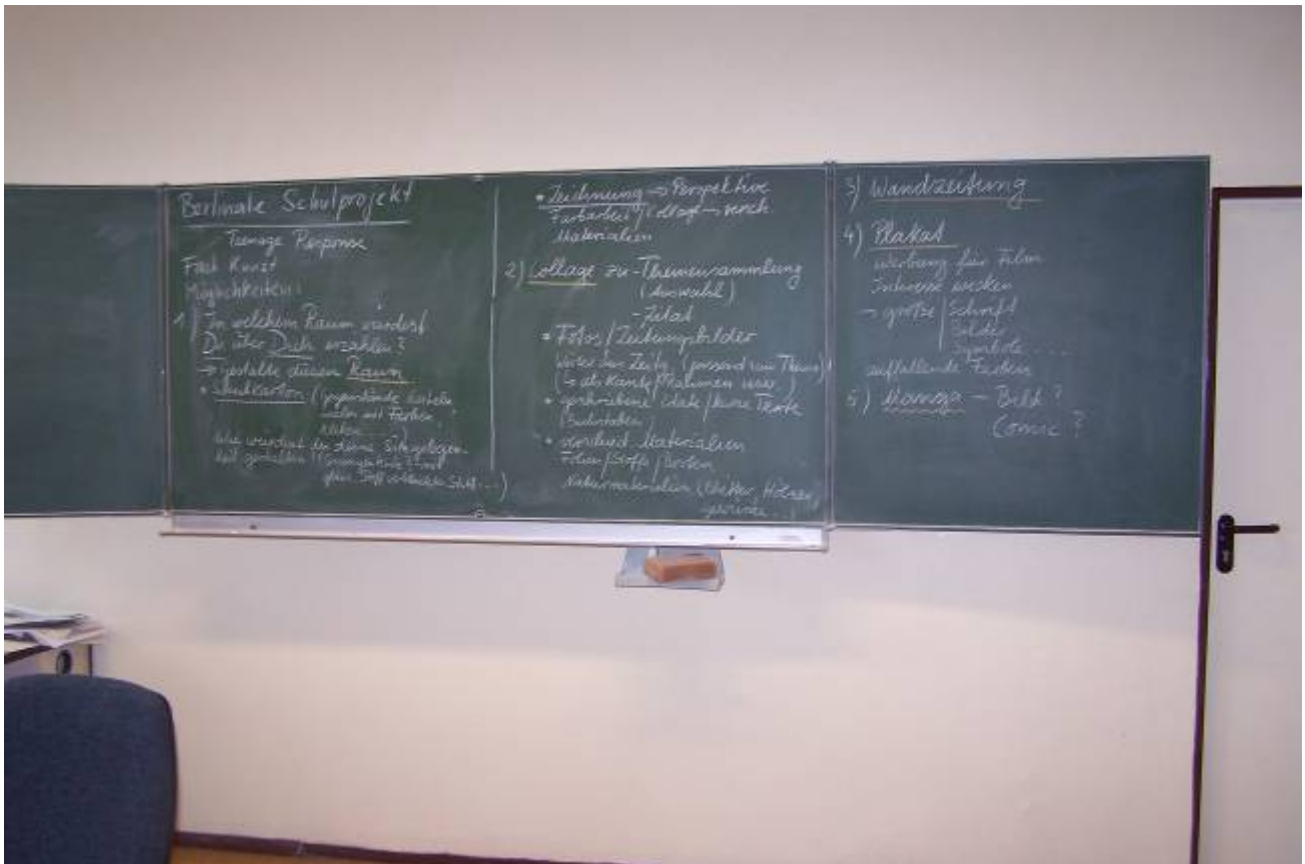 Berlinale Schulprojekt
Teenage Response
Fach Kunst
Möglichkeiten:
1) In welchem Raum würdest
Du über Dich erzählen?
→ gestalte diesen Raum
• Schuhkarton (Gegenstände basteln
malen mit Farben,
Wie würdest du deine Sitzgelegen-
heit gestalten
• Zeichnung → Perspektive
Farbarbeit / Collage → versch.
Materialien
2) Collage zu - Themensammlung
(Auswahl)
- Zitat
• Fotos / Zeitungsbilder
Wörter (passend zum Thema)
(→ als Kante / Rahmen usw.)
• geschriebene Zitate / kurze Texte
Buchstaben
• verschied. Materialien
Folien / Stoffe / Borten
Naturmaterialien (Blätter, Hölzer,
3) Wandzeitung
4) Plakat
Werbung für Film
Interesse wecken
→ große Schrift
Bilder
Symbole .....
auffallende Farben
5) Manga - Bild?
Comic?